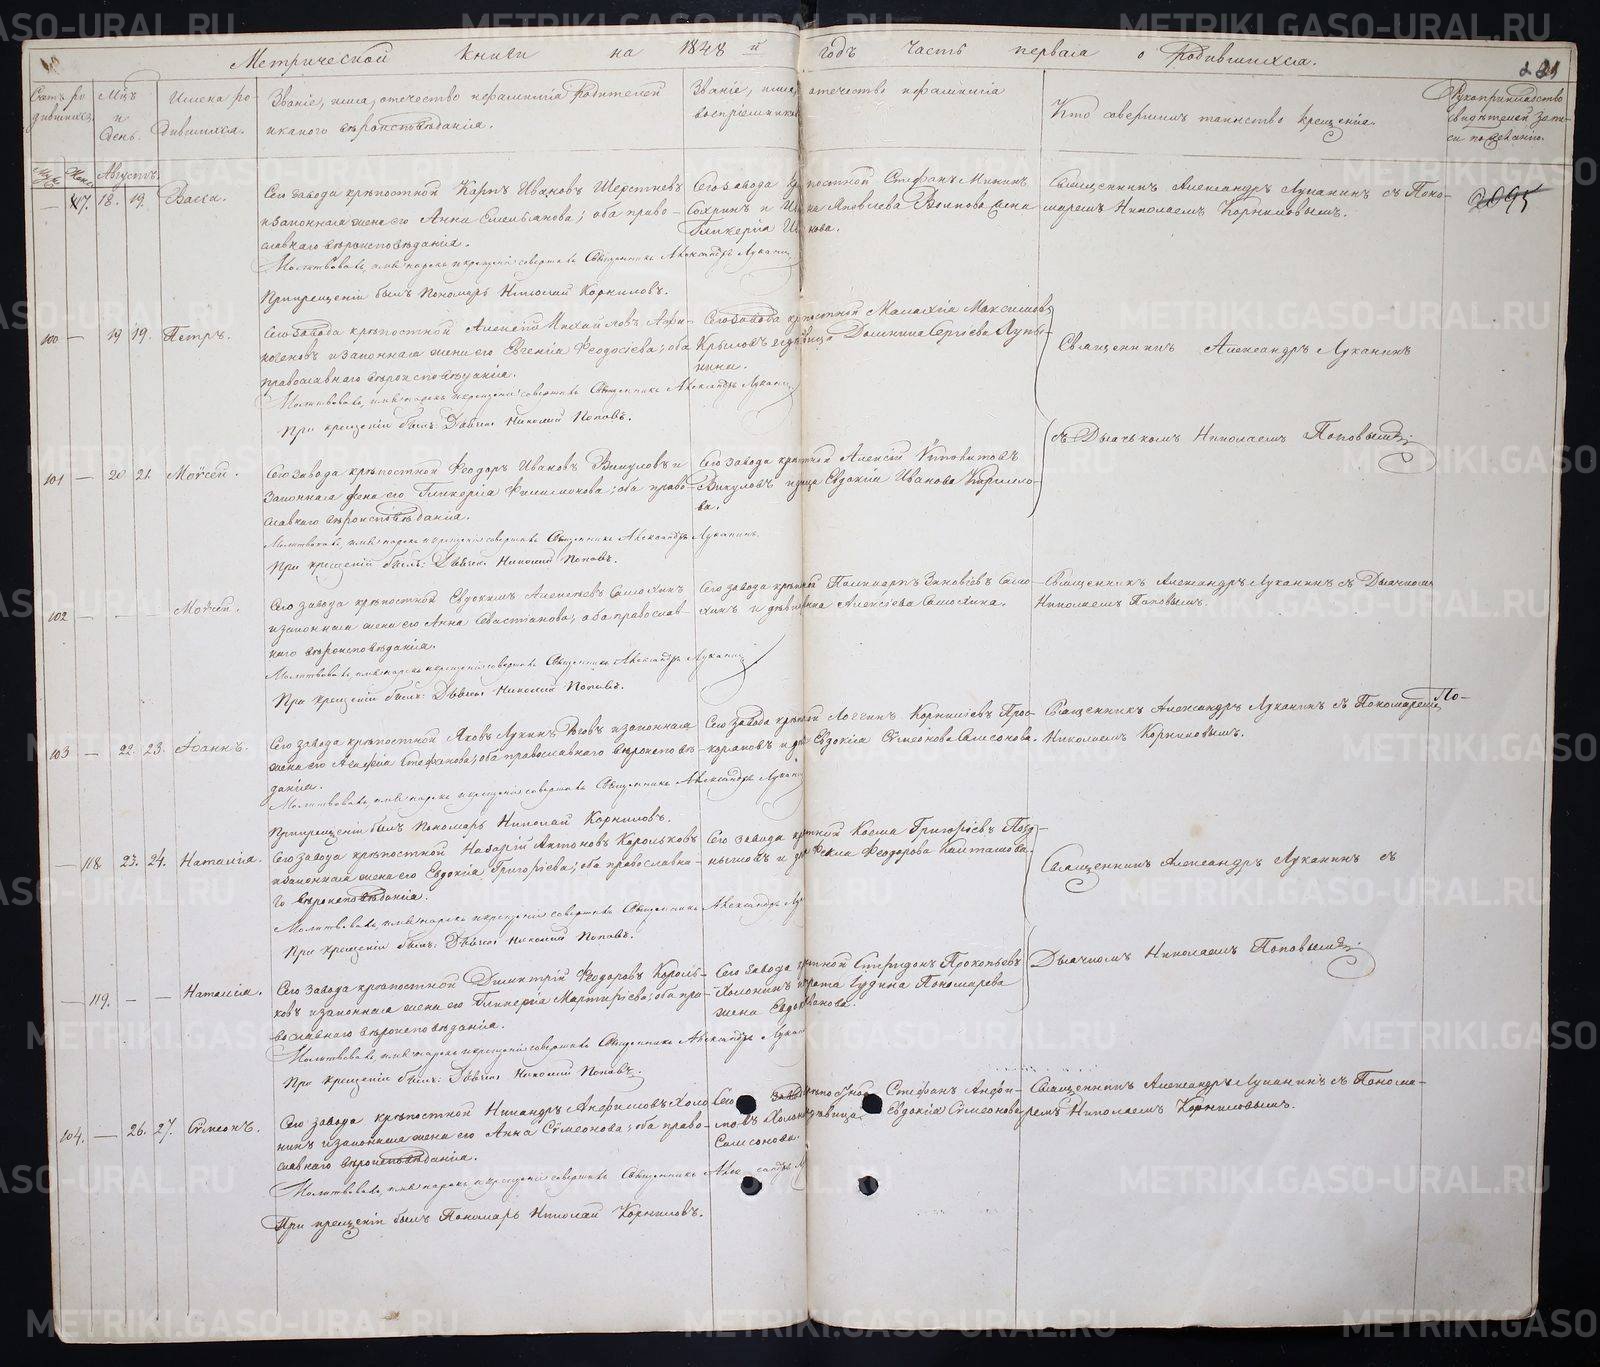 Метрической книги на 1848й годъ часть первая о Родившихся.
Счетъ родившихся.
Мѣц и день.
Имена родившихся.
Званіе, имя, отечество и фамилія Родителей
и какого вѣроисповѣданія.
Званіе, имя, отечество и фамилія
воспріемников
Кто совершилъ таинство крещенія.
Рукоприкладство
свидѣтелей записи по желанію.
Августъ.
117. 18. 19. Васса.
Сего завода крѣпостной Карпъ Ивановъ Шерстневъ
и законная жена его Анна Емельянова; оба право-
славнаго вѣроисповѣданія.
Молитвовалъ, имя нарекъ и крещеніе совершалъ Священникъ Александръ Луканинъ
При крещеніи былъ Пономарь Николай Корниловъ.
Сего завода крѣпостной Стефанъ Мининъ
Священникъ Александръ Луканинъ съ Поно-
маремъ Николаемъ Корниловымъ.
2095
100 — 19 19. Петръ.
Сего завода крѣпостной Алексій Михайловъ
и законная жена его Евгенія Феодосіева; оба
православнаго вѣроисповѣданія.
Молитвовалъ, имя нарекъ и крещеніе совершалъ Священникъ Александръ Луканинъ
При крещеніи былъ: Дьячекъ Николай Поповъ.
Сего завода крѣпостной Малахія Максимовъ
Крыловъ и дѣвица Домнина Сергіева
Священникъ Александръ Луканинъ
съ Дьячькомъ Николаемъ Поповымъ.
101 — 20 21. Моѵсей.
Сего завода крѣпостной Феодоръ Ивановъ Викуловъ и
законная жена его Гликерія Филимонова; оба право-
славнаго вѣроисповѣданія.
Молитвовалъ, имя нарекъ и крещеніе совершалъ Священникъ Александръ Луканинъ.
При крещеніи былъ: Дьячекъ Николай Поповъ.
Сего завода крѣпостной Алексій
Викуловъ и дѣвица Евдокія Иванова Кирилло-
ва.
102 — — — Моѵсей.
Сего завода крѣпостной Евдокимъ Алексѣевъ Самохинъ
и законная жена его Анна Севастіанова; оба православ-
наго вѣроисповѣданія.
Молитвовалъ, имя нарекъ и крещеніе совершалъ Священникъ Александръ Луканинъ
При крещеніи былъ: Дьячекъ Николай Поповъ.
Сего завода крѣпостной Поликарпъ Зиновіевъ Само-
хинъ и дѣвица Алексіева Самохина.
Священникъ Александръ Луканинъ съ Дьячкомъ
Николаемъ Поповымъ.
103 — 22. 23. Іоаннъ.
Сего завода крѣпостной Яковъ Лукинъ и законная
жена его Агафія Стефанова; оба православнаго вѣроисповѣ-
данія.
Молитвовалъ, имя нарекъ и крещеніе совершалъ Священникъ Александръ Луканинъ
При крещеніи былъ Пономарь Николай Корниловъ.
Сего завода крѣпостной Логгинъ Корниліевъ Прос-
Евдокія Сѵмеонова Самсонова.
Священникъ Александръ Луканинъ съ Пономаремъ
Николаемъ Корниловымъ.
— 118 23. 24. Наталія.
Сего завода крѣпостной Назарій Антоновъ Корольковъ
и законная жена его Евдокія Григорьева; оба православна-
го вѣроисповѣданія.
Молитвовалъ, имя нарекъ и крещеніе совершалъ Священникъ Александръ Лу
При крещеніи былъ: Дьячекъ Николай Поповъ.
Сего завода крѣпостной Косма Григоріевъ
Фекла Феодорова Калташова.
Священникъ Александръ Луканинъ съ
Дьячкомъ Николаемъ Поповымъ.
— 119. — — Наталія.
Сего завода крѣпостной Димитрій Феодоровъ Король-
ковъ и законная жена его Гликерія Мартиріева; оба пра-
вославнаго вѣроисповѣданія.
Молитвовалъ, имя нарекъ и крещеніе совершалъ Священникъ Александръ Лукан
При крещеніи былъ: Дьячекъ Николай Поповъ.
Сего завода крѣпостной Спиридонъ Прокопьевъ
Холкинъ Пономарева
жена
104. — 26. 27. Сѵмеонъ.
Сего завода крѣпостной Никандръ Анфиловъ Холо
нинъ и законная жена его Анна Сѵмеонова; оба право-
славнаго вѣроисповѣданія.
Молитвовалъ, имя нарекъ и крещеніе совершалъ Священникъ Александръ Л
При крещеніи былъ Пономарь Николай Корниловъ.
Сего завода Стефанъ Анфи-
дѣвица Евдокія Сѵмеонова
Самсонова.
Священникъ Александръ Луканинъ съ Понома-
ремъ Николаемъ Корниловымъ.
METRIKI.GASO-URAL.RU